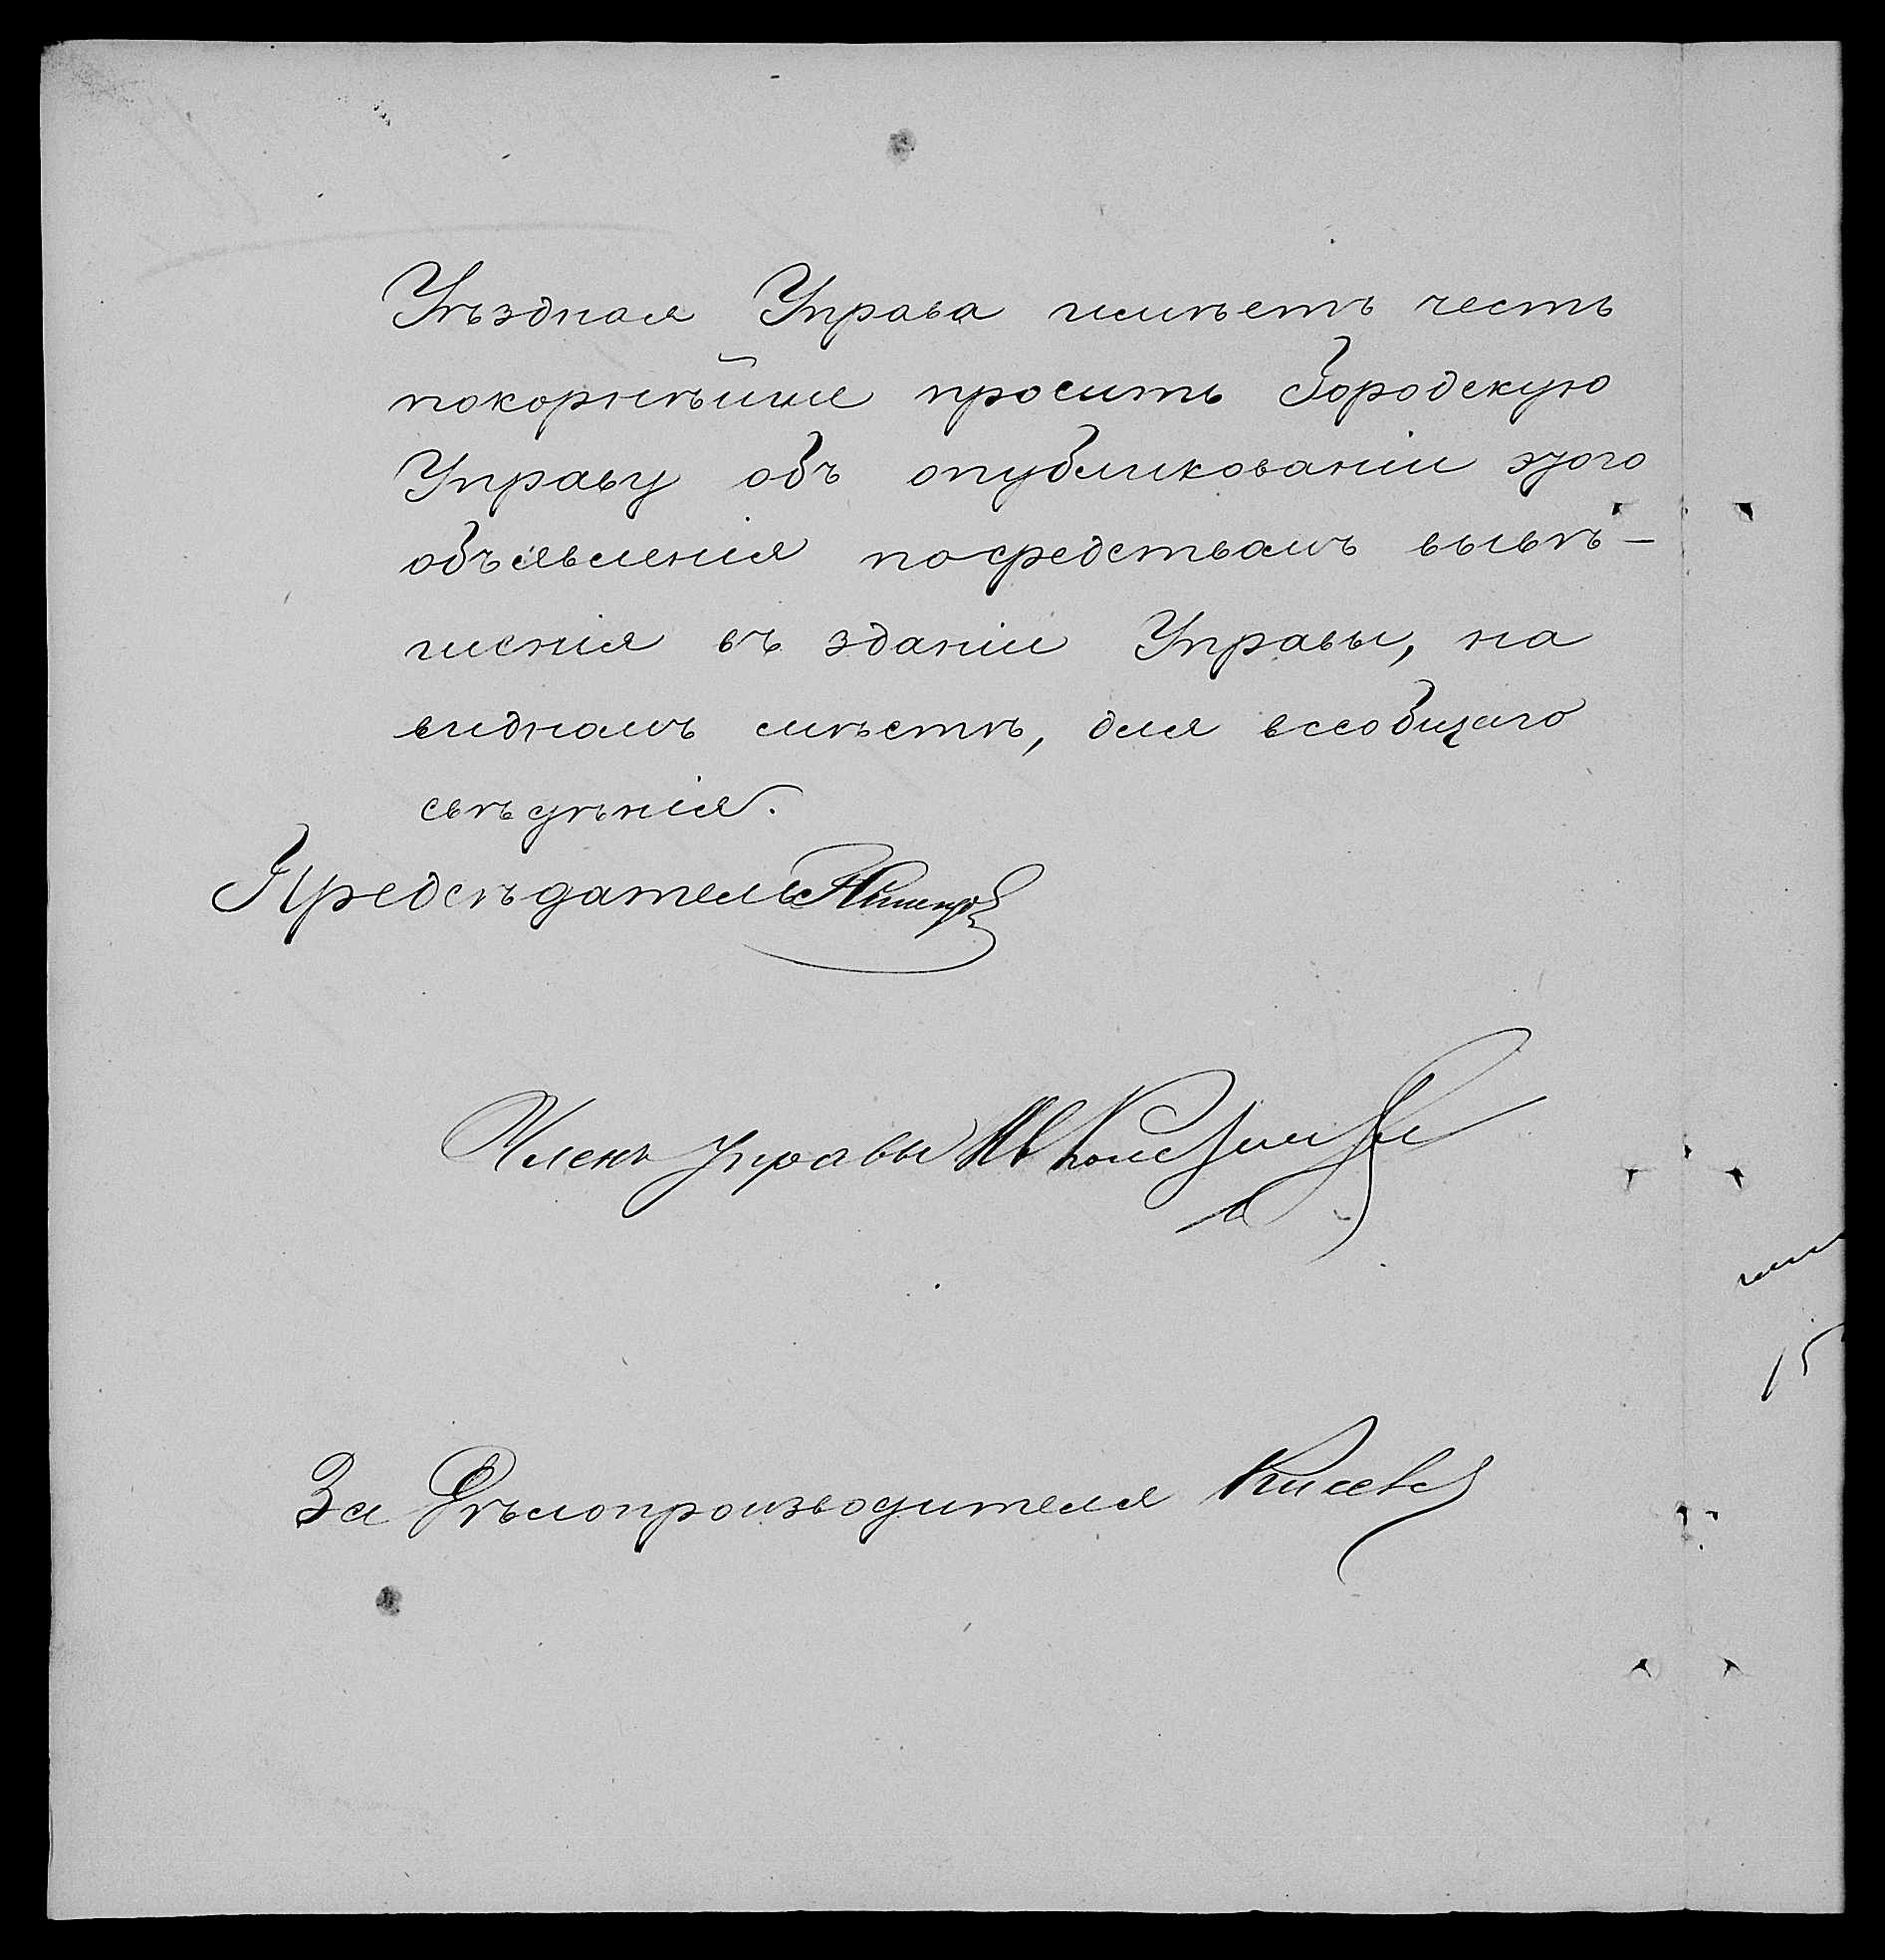 Уѣздная Управа имѣетъ честь
покорнѣйше просить Городскую
Управу объ опубликованіи этого
объявленія посредствамъ вывѣ-
шенія въ зданіи Управы, на
видномъ мѣстѣ, для всеобщаго
свѣдѣнія.
Предсѣдатель
Членъ Управы
За Дѣлопроизводителя
15